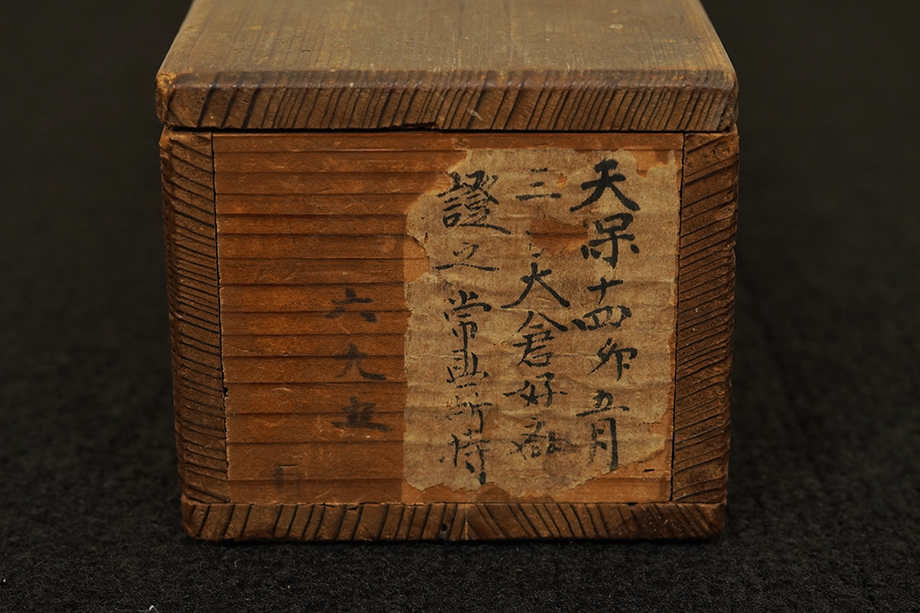 天保十四卯五月
三 大倉好斎
證之常典所持
六九五